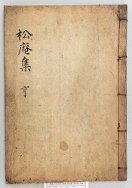 松庵集 亨